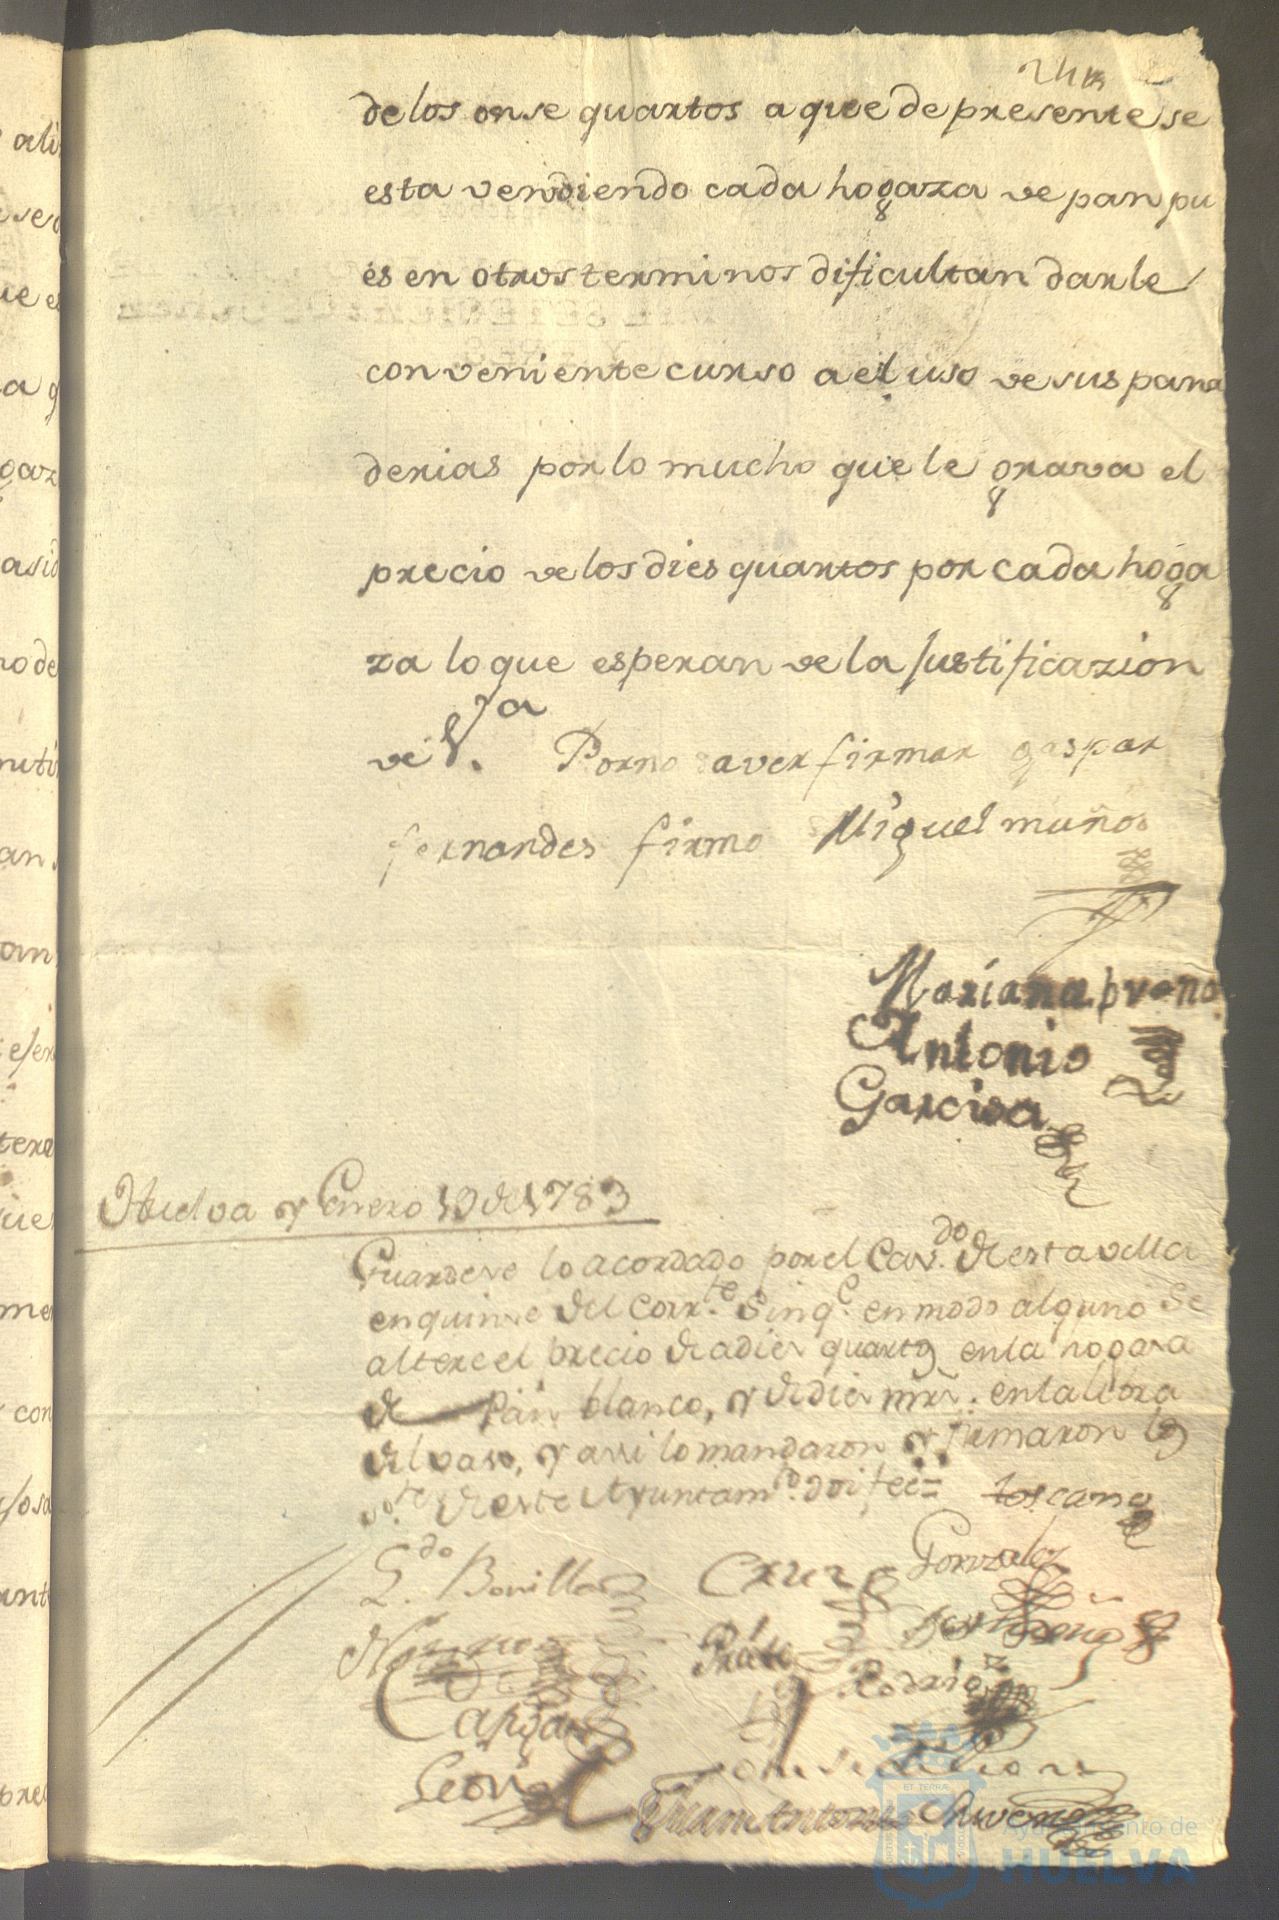 de los onse quartos a que de presente se
esta vendiendo cada hogaza de pan pu
es en otros terminos dificultan darle
conveniente curso a el uso de sus pana
derias por lo mucho que le grava el
precio de los dies quartos por cada hoga
za lo que esperan de la Justificazion
de V.ª Por no saver firmar gaspar
fernandes firmo Miguel muños
Mariana bueno
Antonio
Garcisa
Huelva y Enero 19 de 1783
Guardese lo acordado por el Cav.do de esta villa
en quinse del corr.te sin q.e en modo alguno se
altere el precio de a dies quartos en la hogasa
de Pan blanco, y de dies mrs. en la libra
del vaso, y assi lo mandaron y firmaron los
so.res de este Ayuntam.to doi fee=
toscano
L.do Bonilla Cruz Gonzales
Moreno Prieto
Rodrig.z
León
Juan Antonio
Ayuntamiento de
HUELVA